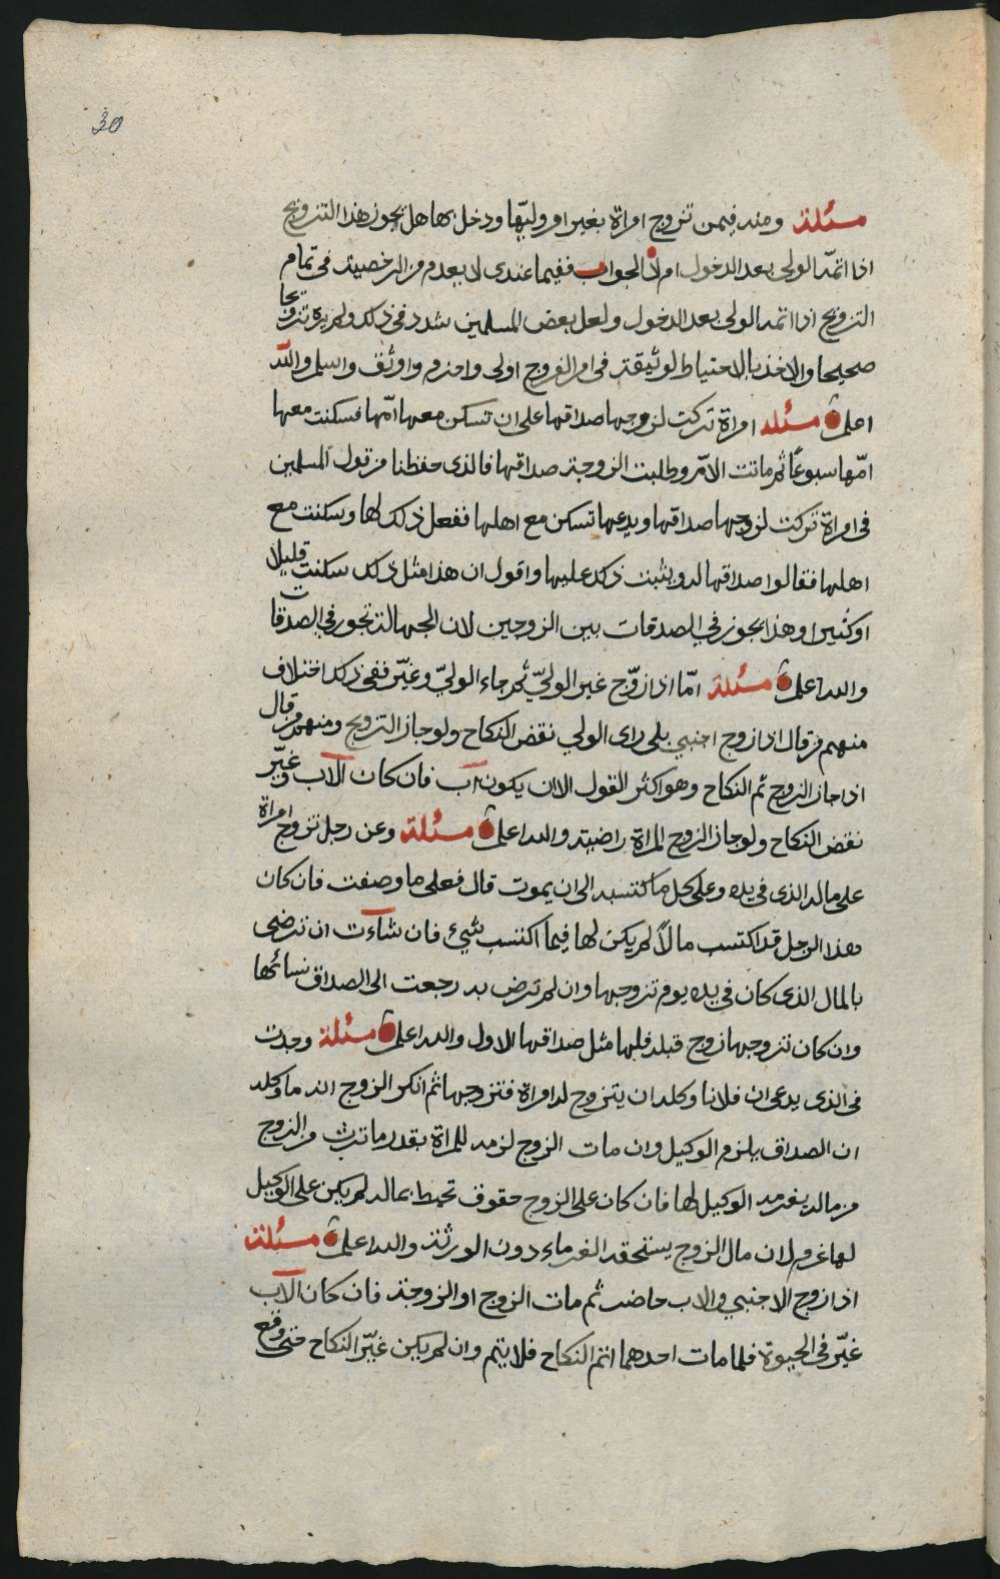 30
مسئلة ومنه فيمن تزوج امراة بغير امر وليّها ودخل بها هل يجوز هذا التزويج
اذا اتمّه الولي بعد الدخول ام لا الجواب ففيما عندى لا يعدم من الترخصيد في تمام
التزويج اذا اتمه الولي بعد الدخول ولعل بعض المسلمين شدد في ذلك ولم يره تزويجا
صحيحا والاخذ بالاحتياط لوثيقة في امر الفروج اولى واحزم واوثق واسلم والله
اعلم مسئله امراة تركت لزوجها صداقها على ان تسكن معها امّها فسكنت معها
امّها سبوعًا ثم ماتت الامّ وطلبت الزوجة صداقها فالذى حفظنا من قول المسلمين
في امراة تركت لزوجها صداقها ويدعها تسكن مع اهلها ففعل ذلك لها وسكنت مع
اهلها فقالوا صداقها له ويثبت ذلك عليها واقول ان هذا مثل ذلك سكنت قليلا
او كثيرا وهذا يجوز في الصدقات بين الزوجين لان الجهالة تجوز في الصدقات
والله اعلم مسئلة امّا اذا زوّج غير الوليّ ثم جاء الوليّ وغيّر ففي ذلك اختلاف
منهم من قال اذا زوج اجنبي بلى راى الولي نقض النكاح ولو جاز التزويج ومنهم من قال
اذا جاز الزوج تم النكاح وهو اكثر القول الا ان يكون اب فان كان الاب وغيّر
نقض النكاح ولو جاز الزوج المراة راضية والله اعلم مسئلة وعن رجل تزوج امراة
على ماله الذى في يده وعلى كل ما كتسبه الى ان يموت قال فعلى ما وصفت فان كان
هذا الرجل قد اكتسب مالاً لم يكن لها فيما اكتسب شيء فان شاءت ان ترضى
بالمال الذى كان في يده يوم تزوجها وان لم ترض به رجعت الى الصداق نسائها
وان كان تزوجها زوج قبله فلها مثل صداقها الاول والله اعلم مسئلة وجدت
في الذى يدعى ان فلانا وكله ان يتزوج له امراة فتزوجها ثم انكر الزوج انه ما وكله
ان الصداق يلزم الوكيل وان مات الزوج لزمه للمراة بقدر ما ترث من الزوج
من ماله يغرمه الوكيل لها فان كان على الزوج حقوق تحيط بماله لم يكن على الوكيل
لها غرم لان مال الزوج يستحقه الغرماء دون الورثة والله اعلم مسئلة
اذا زوج الاجنبي والاب حاضر ثم مات الزوج او الزوجة فان كان الاب
غيّر في الحيوة فلما مات احدهما اتم النكاح فلا يتم وان لم يكن غيّر النكاح حتى وقع